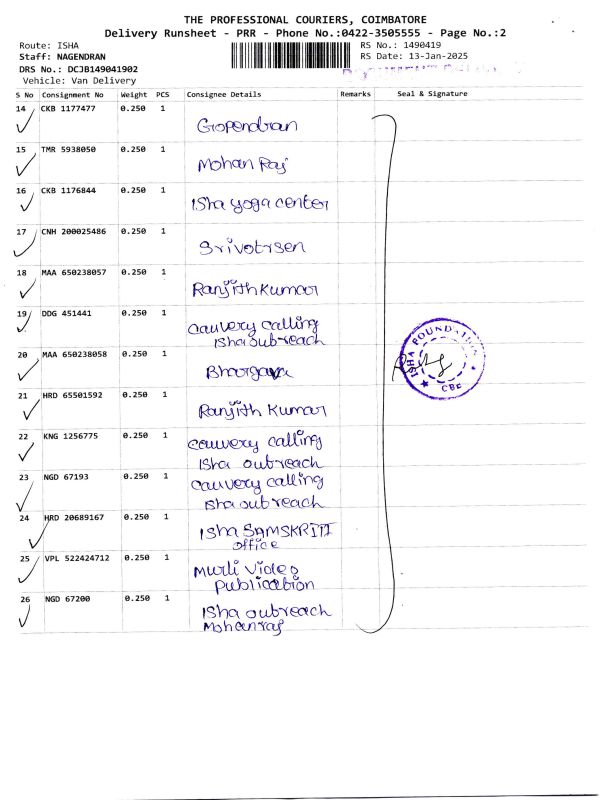 THE PROFESSIONAL COURIERS, COIMBATORE
Delivery Runsheet - PRR - Phone No.:0422-3505555 - Page No.:2
Route: ISHA RS No.: 1490419
Staff: NAGENDRAN RS Date: 13-Jan-2025
DRS No.: DCJB149041902
Vehicle: Van Delivery
S No Consignment No Weight PCS Consignee Details Remarks Seal & Signature
14 CKB 1177477 0.250 1
Gopendran
15 TMR 5938050 0.250 1
Mohan Raj
16 CKB 1176844 0.250 1
Isha yoga center
17 CNH 200025486 0.250 1
Srivotrsen
18 MAA 650238057 0.250 1
Ranjith Kumar
19 DDG 451441 0.250 1
cauvery calling
Isha outreach
20 MAA 650238058 0.250 1
Bhargava
21 HRD 65501592 0.250 1
Ranjith Kumar
22 KNG 1256775 0.250 1
cauvery calling
Isha outreach
23 NGD 67193 0.250 1
cauvery calling
Isha outreach
24 HRD 20689167 0.250 1
Isha SAMSKRITI
office
25 VPL 522424712 0.250 1
Murli Video
publication
26 NGD 67200 0.250 1
Isha outreach
Mohanraj
ISHA FOUNDATION
CBE